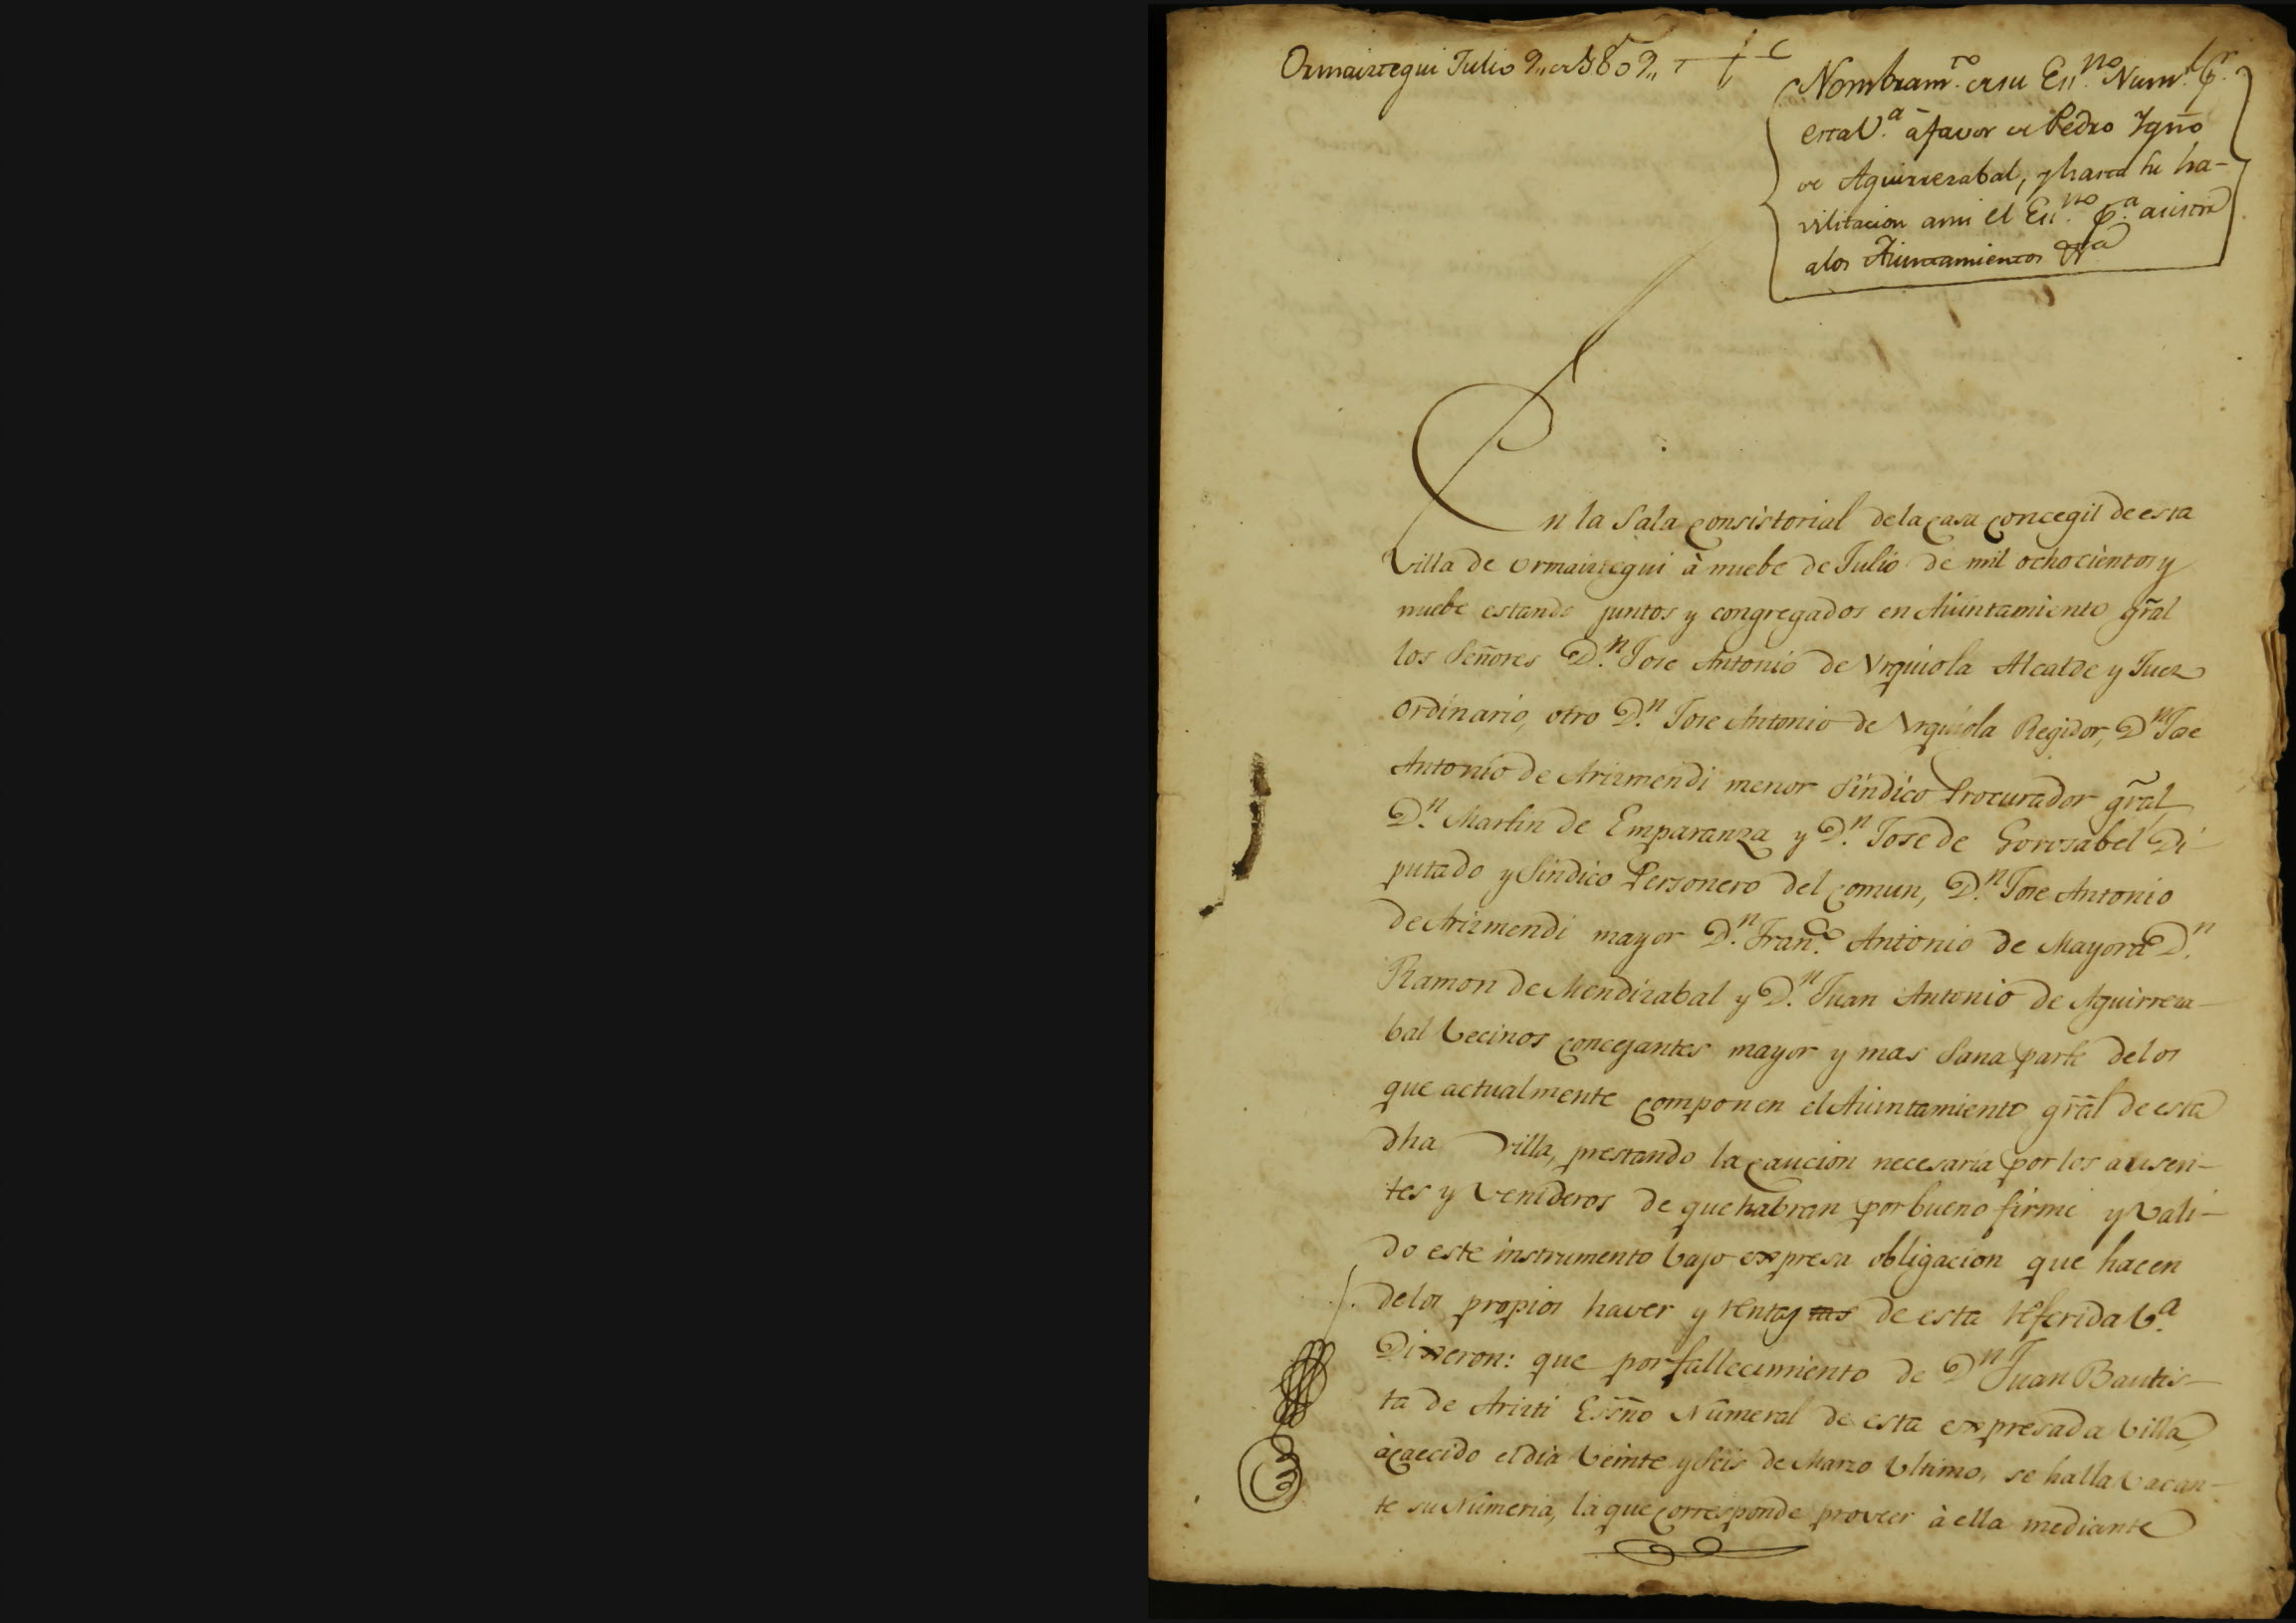 Ormaiztegui Julio 9,, de 1809,,
Nombram.to de su Ess.no Num.l Pr.
esta V.a â favor de Pedro Ygño
de Aguirrezabal, y hasta su ha-
vilitacion a mi el Ess.no P.a asistir
a los Aiuntamientos &a
En la Sala Consistorial de la casa Concegil de esta
Villa de Ormaiztegui à nuebe de Julio de mil ochocientos y
nuebe estando juntos y congregados en Aiüntamiento gr̃al
los Señores D.n Jose Antonio de Vrquiola Alcalde y Juez
Ordinario, otro D.n Jose Antonio de Vrquiola Regidor, D.n Jose
Antonio de Arizmendi menor Síndico Procurador gr̃al,
D.n Martin de Emparanza y D.n Jose de Gorosabel Di-
putado y Sindico Personero del comun, D.n Jose Antonio
de Arizmendi mayor D.n Fran.co Antonio de Mayora D.n
Ramon de Mendizabal y D.n Juan Antonio de Aguirreza-
bal Vecinos concejantes mayor y mas Sana parte de los
que actualmente componen el Aiuntamiento gr̃al de esta
dha Villa, prestando la caucion necesaria por los ausen-
tes y Venideros de que habran por bueno firme y Vali-
do este instrumento bajo expresa obligacion que hacen
de los propios haver y rentas de esta referida V.a
Dixeron: que por fallecimiento de D.n Juan Bautis-
ta de Arizti Essño Nûmeral de esta expresada Villa,
àcaecido el dia Veinte y Seis de Marzo Ultimo, se halla Vacan-
te su Nûmeria, la que corresponde proveer à ella mediante